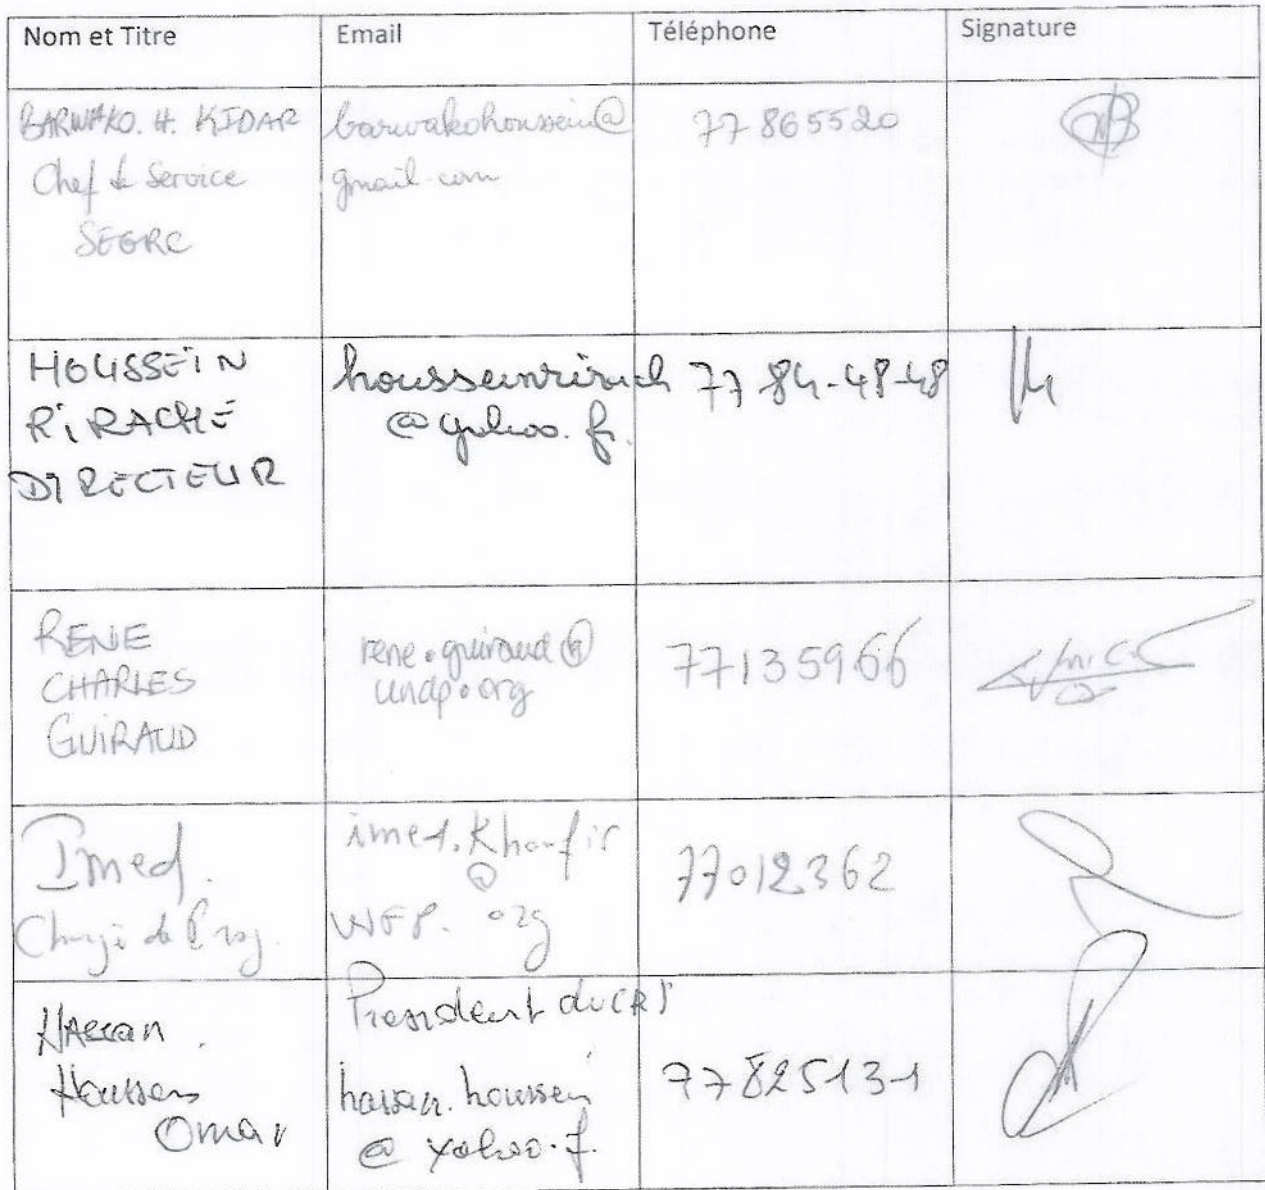 Nom et Titre
Email
Téléphone
Signature
BARWAKO. H. KIDAR
Chef de Service
SEGRC
barwakohoussein@
gmail.com
77 865520
HOUSSEIN
RIRACHE
DIRECTEUR
housseinrirach
@yahoo.fr.
77 84-48-48
RENE
CHARLES
GUIRAUD
rene.guiraud@
undp.org
77135966
Imed.
Chargé de Prog.
imed.Khanfir
@
WFP. org
77012362
Hassan
Houssein
Omar
President du CRD
hassan.houssein
@ yahoo.f.
77825131